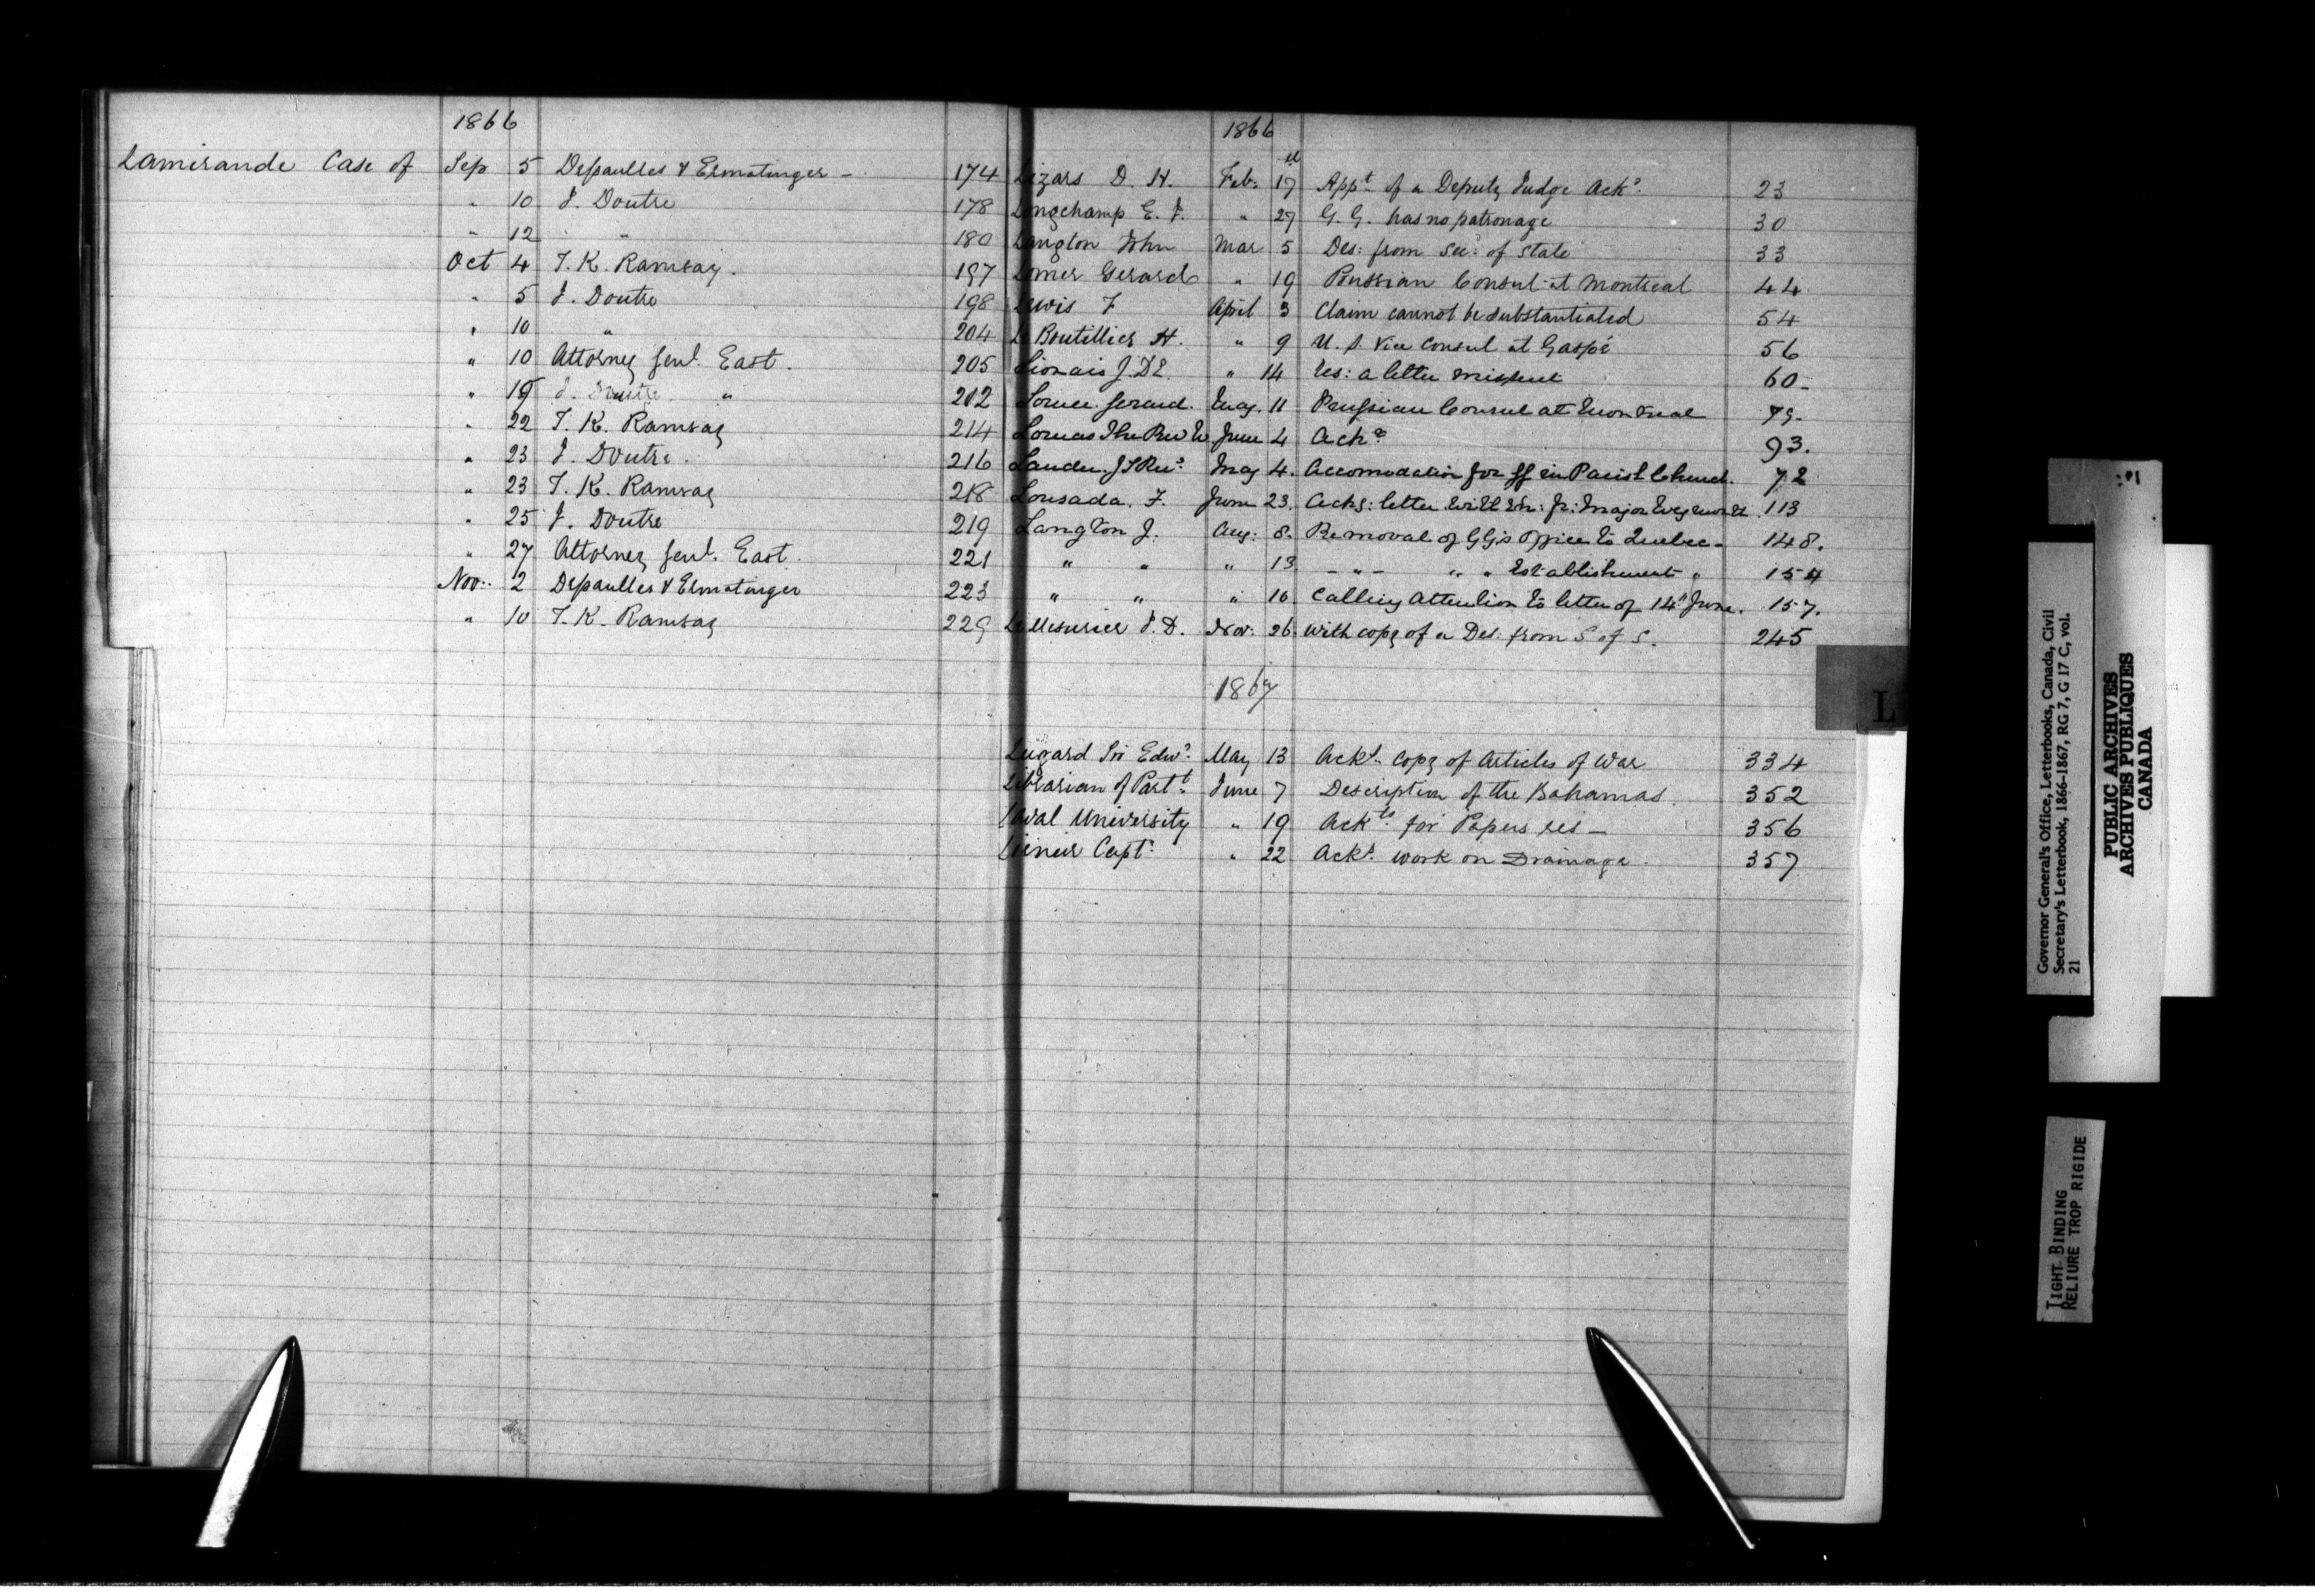 1866
Lamirande Case of Sep 5 Dessaulles & Ermatinger - 174
" 10 J. Doutre 178
" 12 " 180
Oct 4 T. K. Ramsay. 197
" 5 J. Doutre 198
" 10 " 204
" 10 Attorney Genl. East. 205
" 19 J. Doutre " 212
" 22 T. K. Ramsay 214
" 23 J. Doutre. 216
" 23 T. K. Ramsay 218
" 25 J. Doutre 219
" 27 Attorney Genl. East. 221
Nov. 2 Dessaulles & Ermatinger 223
" 10 T. K. Ramsay 229
1866
Lizars D. H. Feb. 17 Appt of a Deputy Judge Ackd. 23
Longchamp E. J. " 27 G. G. has no patronage 30
Langton John Mar 5 Des: from Sec: of State 33
Lomer Gerard " 19 Prussian Consul at Montreal 44
Lewis F April 3 Claim cannot be substantiated 54
Le Boutillier H. " 9 U. S. Vice Consul at Gaspé 56
Lionais J. " 14 res: a letter missent 60
Lomer Gerard. May. 11 Prussian Consul at Montreal 79.
Lomas The Rev June 4 Ackg 93.
Lauder. J S Rev: May 4. Accomodation for in Parish Church. 72
Lousada. F. June 23. Ackg: letter fr: Major 113
Langton J. Aug: 8. Removal of GG's Office to Quebec - 148.
" " " 13 - " - " " Establishment " 154
" " " 16 Calling Attention to letter of 14th June. 157.
LeMesurier J. D. Nov: 26. With copy of a Des: from S of S. 245
1867
Lugard Sir Edwd. May 13 Ackt. Copy of Articles of War 334
Librarian of Parlt. June 7 Description of the Bahamas. 352
Laval University " 19 Ackts for Papers res - 356
Capt. " 22 Ackt. work on Drainage. 357
L
Governor General's Office, Letterbooks, Canada, Civil
Secretary's Letterbook, 1866-1867, RG 7, G 17 C, vol.
21
PUBLIC ARCHIVES
ARCHIVES PUBLIQUES
CANADA
TIGHT BINDING
RELIURE TROP RIGIDE